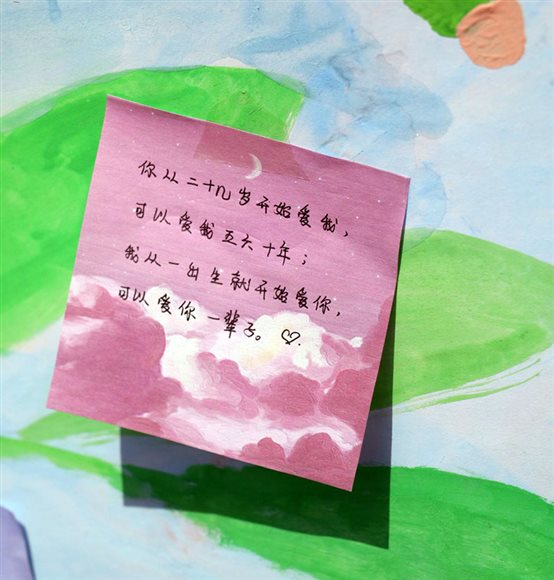 你从二十几岁开始爱我,
可以爱我五六十年;
我从一出生就开始爱你,
可以爱你一辈子。♡.